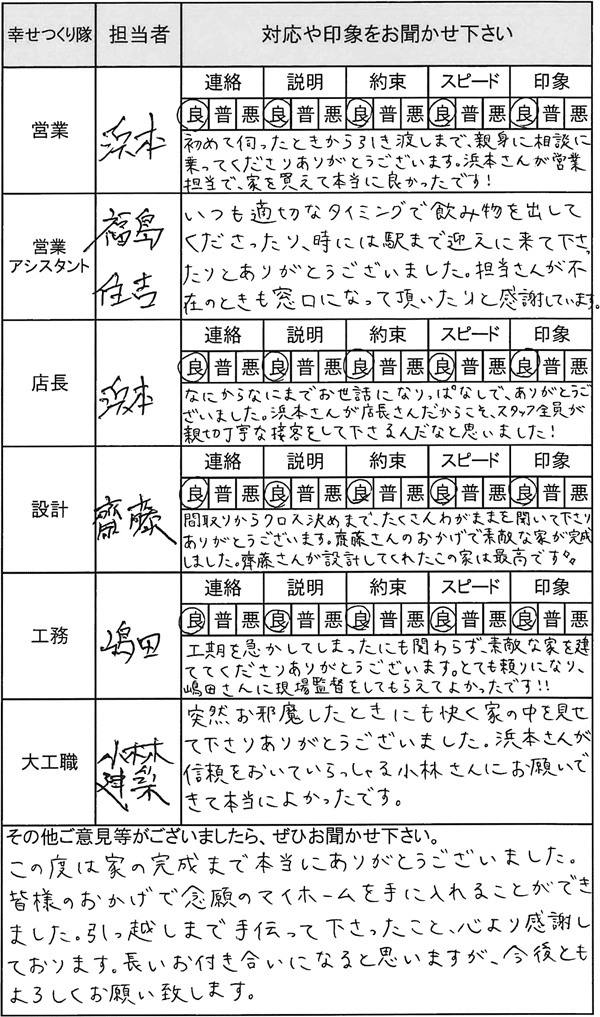 幸せつくり隊 担当者 対応や印象をお聞かせ下さい
連絡 説明 約束 スピード 印象
営業 浜本 良 普 悪 良 普 悪 良 普 悪 良 普 悪 良 普 悪
初めて伺ったときから引き渡しまで、親身に相談に
乗ってくださりありがとうございます。浜本さんが営業
担当で、家を買えて本当に良かったです!
営業
アシスタント
福島
住吉
いつも適切なタイミングで飲み物を出して
くださったり、時には駅まで迎えに来て下さっ
たりとありがとうございました。担当さんが不
在のときも窓口になって頂いたりと感謝しています。
連絡 説明 約束 スピード 印象
店長 浜本 良 普 悪 良 普 悪 良 普 悪 良 普 悪 良 普 悪
なにからなにまでお世話になりっぱなしで、ありがとうご
ざいました。浜本さんが店長さんだからこそ、スタッフ全員が
親切丁寧な接客をして下さるんだなと思いました!
連絡 説明 約束 スピード 印象
設計 齋藤 良 普 悪 良 普 悪 良 普 悪 良 普 悪 良 普 悪
間取りからクロス決めまで、たくさんわがままを聞いて下さり
ありがとうございます。齋藤さんのおかげで素敵な家が完成
しました。齋藤さんが設計してくれたこの家は最高です
連絡 説明 約束 スピード 印象
工務 嶋田 良 普 悪 良 普 悪 良 普 悪 良 普 悪 良 普 悪
工期を急かしてしまったにも関わらず、素敵な家を建
ててくださりありがとうございます。とても頼りになり、
嶋田さんに現場監督をしてもらえてよかったです!!
大工職
小林
突然お邪魔したときにも快く家の中を見せ
て下さりありがとうございました。浜本さんが
信頼をおいていらっしゃる小林さんにお願いで
きて本当によかったです。
その他ご意見等がございましたら、ぜひお聞かせ下さい。
この度は家の完成まで本当にありがとうございました。
皆様のおかげで念願のマイホームを手に入れることができ
ました。引っ越しまで手伝って下さったこと、心より感謝し
ております。長いお付き合いになると思いますが、今後とも
よろしくお願い致します。